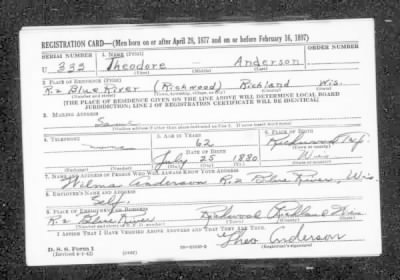 REGISTRATION CARD—(Men born on or after April 28, 1877 and on or before February 16, 1897)
SERIAL NUMBER 1. NAME (Print) ORDER NUMBER
U 335 Theodore Anderson
(First) (Middle) (Last)
2. PLACE OF RESIDENCE (Print)
R.2 Blue River (Richwood) Richland Wis.
(Number and street) (Town, township, village, or city) (County) (State)
[THE PLACE OF RESIDENCE GIVEN ON THE LINE ABOVE WILL DETERMINE LOCAL BOARD
JURISDICTION; LINE 2 OF REGISTRATION CERTIFICATE WILL BE IDENTICAL]
3. MAILING ADDRESS
Same
[Mailing address if other than place indicated on line 2. If same insert word same]
4. TELEPHONE 5. AGE IN YEARS 6. PLACE OF BIRTH
none 62 Richwood Twp.
DATE OF BIRTH (Town or county)
July 25 1880 Wis
(Mo.) (Day) (Yr.) (State or country)
7. NAME AND ADDRESS OF PERSON WHO WILL ALWAYS KNOW YOUR ADDRESS
Wilma Anderson R.2 Blue River, Wis
8. EMPLOYER'S NAME AND ADDRESS
Self.
9. PLACE OF EMPLOYMENT OR BUSINESS
R.2 Blue River Richwood Richland Wis
(Number and street or R. F. D. number) (Town) (County) (State)
I AFFIRM THAT I HAVE VERIFIED ABOVE ANSWERS AND THAT THEY ARE TRUE.
D. S. S. Form 1
(Revised 4-1-42) (over) Theo Anderson
(Registrant's signature)